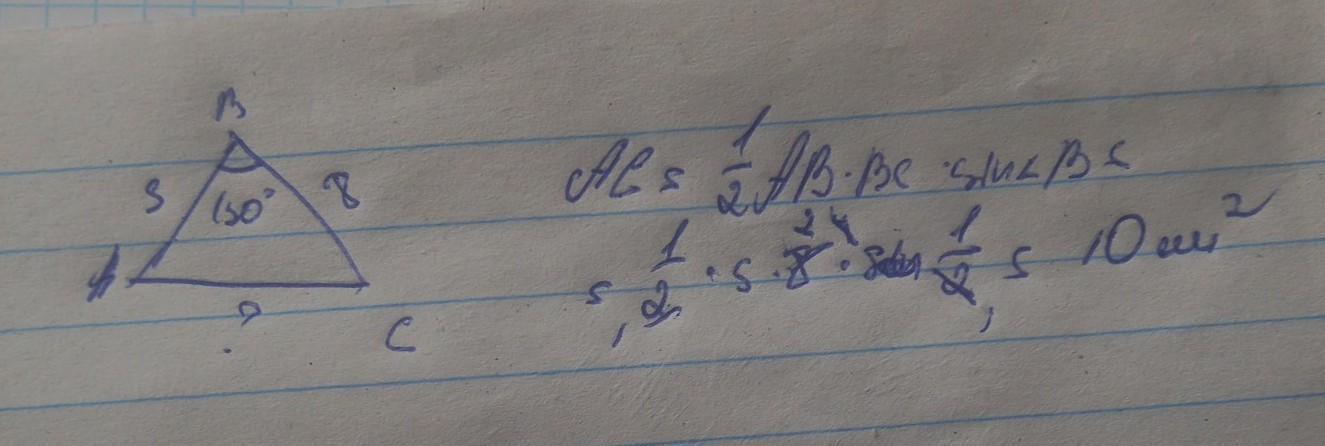 B
5 150° 8
A
? C
AC = 1/2 AB · BC · sin∠B =
= 1/2 · 5 · 8 · 1/2 = 10 см²